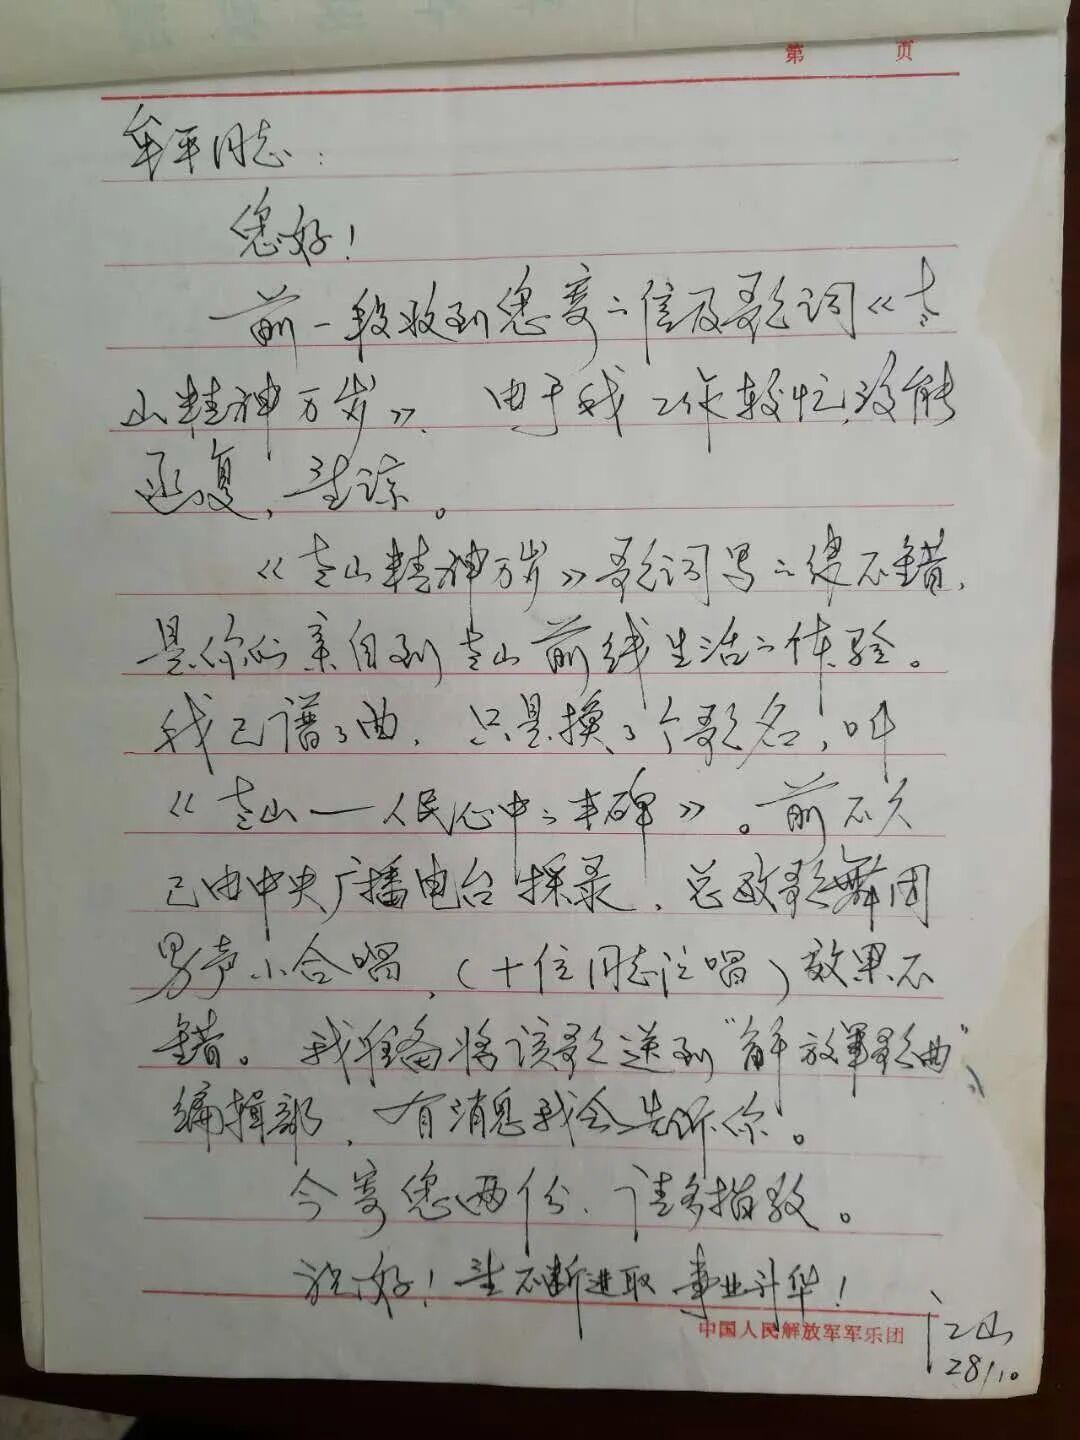 第 页
牟平同志：
您好！
前一段收到您寄的信及歌词《老
山精神万岁》，由于我工作较忙，没能
函复，望谅。
《老山精神万岁》歌词写的很不错，
是你们亲自到老山前线生活的体验。
我已谱了曲，只是换了个歌名，叫
《老山—人民心中的丰碑》。前不久
已由中央广播电台採录，总政歌舞团
男声小合唱，（十位同志演唱）效果不
错。我准备将该歌送到“解放军歌曲”
编辑部，有消息我会告诉你。
今寄您两份，请多指教。
祝好！望不断进取 事业升华！
中国人民解放军军乐团
江山
28/10